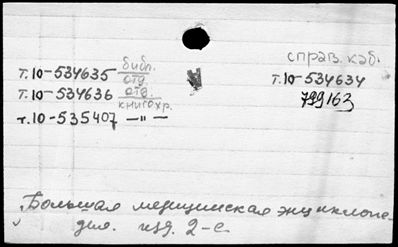 т.10-534635 библ. отд.
т.10-534636 отд. книгохр.
т.10-535407 -"-
справ. каб.
т.10-534634
799163
Большая медицинская энциклопе-
дия. изд. 2-е